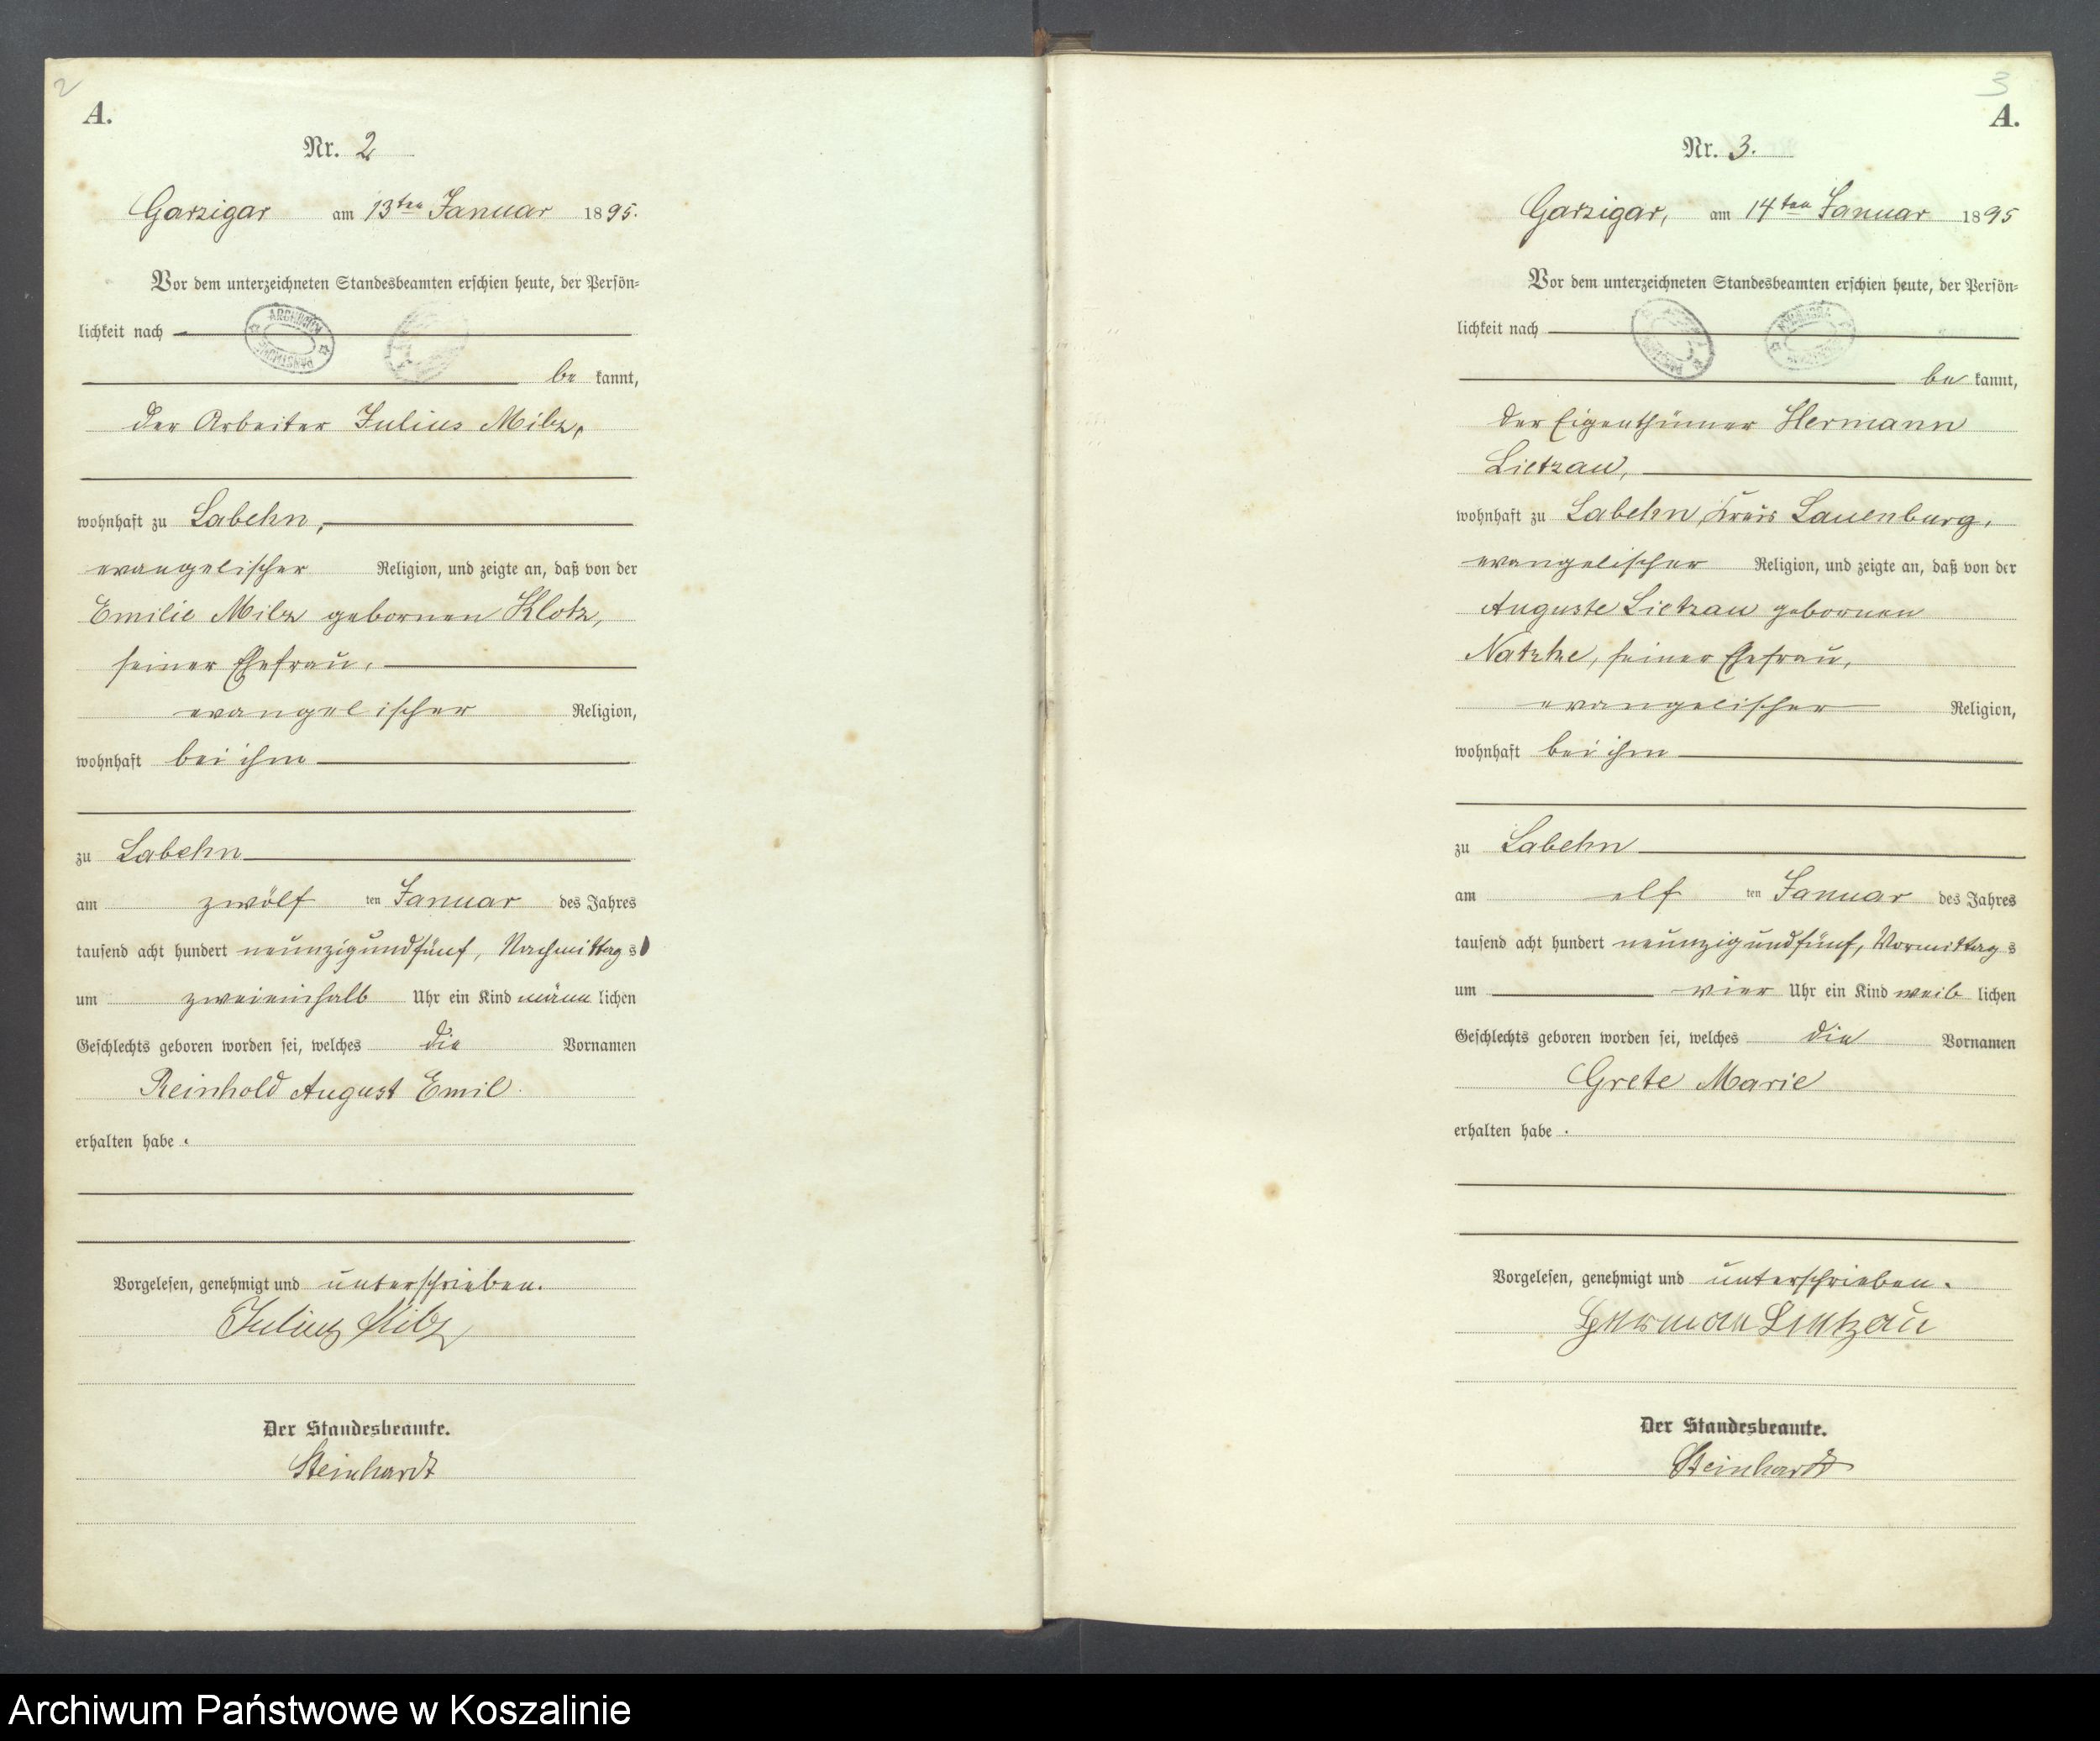 2
A.
Nr. 2
Garzigar am 13ten Januar 1895.
Vor dem unterzeichneten Standesbeamten erschien heute, der Persön-
lichkeit nach
be kannt,
der Arbeiter Julius Milz,
wohnhaft zu Labehn,
evangelischer Religion, und zeigte an, daß von der
Emilie Milz gebornen Klotz,
seiner Ehefrau,
evangelischer Religion,
wohnhaft bei ihm
zu Labehn
am zwölf ten Januar des Jahres
tausend acht hundert neunzigundfünf, Nachmittag s
um zweieinhalb Uhr ein Kind männ lichen
Geschlechts geboren worden sei, welches die Vornamen
Reinhold August Emil
erhalten habe.
Vorgelesen, genehmigt und unterschrieben.
Julius Milz
Der Standesbeamte.
Steinhardt
3
A.
Nr. 3.
Garzigar, am 14ten Januar 1895
Vor dem unterzeichneten Standesbeamten erschien heute, der Persön-
lichkeit nach
be kannt,
der Eigenthümer Hermann
Lietzau,
wohnhaft zu Labehn, Kreis Lauenburg,
evangelischer Religion, und zeigte an, daß von der
Auguste Lietzau gebornen
Natzke, seiner Ehefrau,
evangelischer Religion,
wohnhaft bei ihm
zu Labehn
am elf ten Januar des Jahres
tausend acht hundert neunzigundfünf, Vormittag s
um vier Uhr ein Kind weib lichen
Geschlechts geboren worden sei, welches die Vornamen
Grete Marie
erhalten habe.
Vorgelesen, genehmigt und unterschrieben.
Herman Lietzau
Der Standesbeamte.
Steinhardt
Archiwum Państwowe w Koszalinie